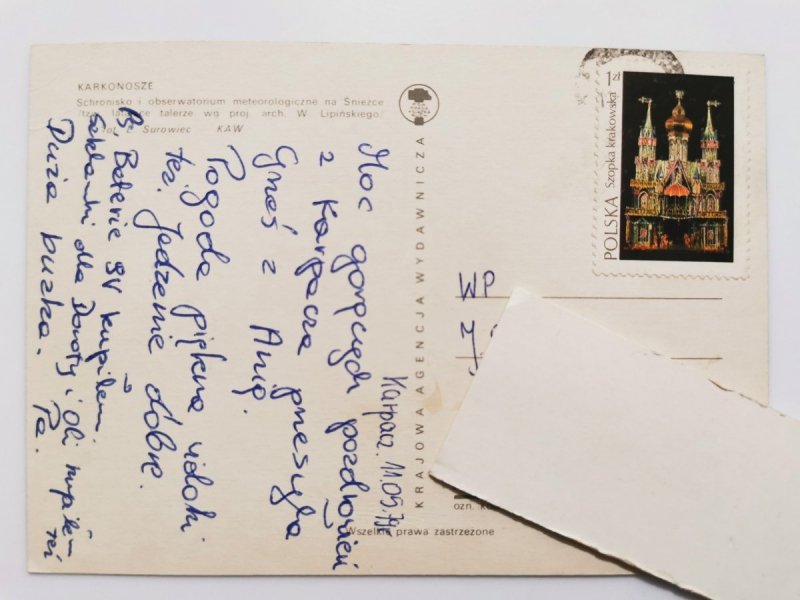 KARKONOSZE
Schronisko i obserwatorium meteorologiczne na Śnieżce
/tzw. latające talerze wg proj. arch. W. Lipińskiego/
Surowiec KAW
Karpacz. 11.05.79
Moc gorących pozdrowień
z Karpacza przesyła
z Anią.
Pogoda piękna widoki
też. Jedzenie dobre.
Ps. Baterie 9V kupiłem.
Szklanki dla Doroty i Oli kupiłem też
Duża buzka. Pa.
KRAJOWA AGENCJA WYDAWNICZA
Wszelkie prawa zastrzeżone
1 zł
POLSKA Szopka krakowska
WP
ozn.